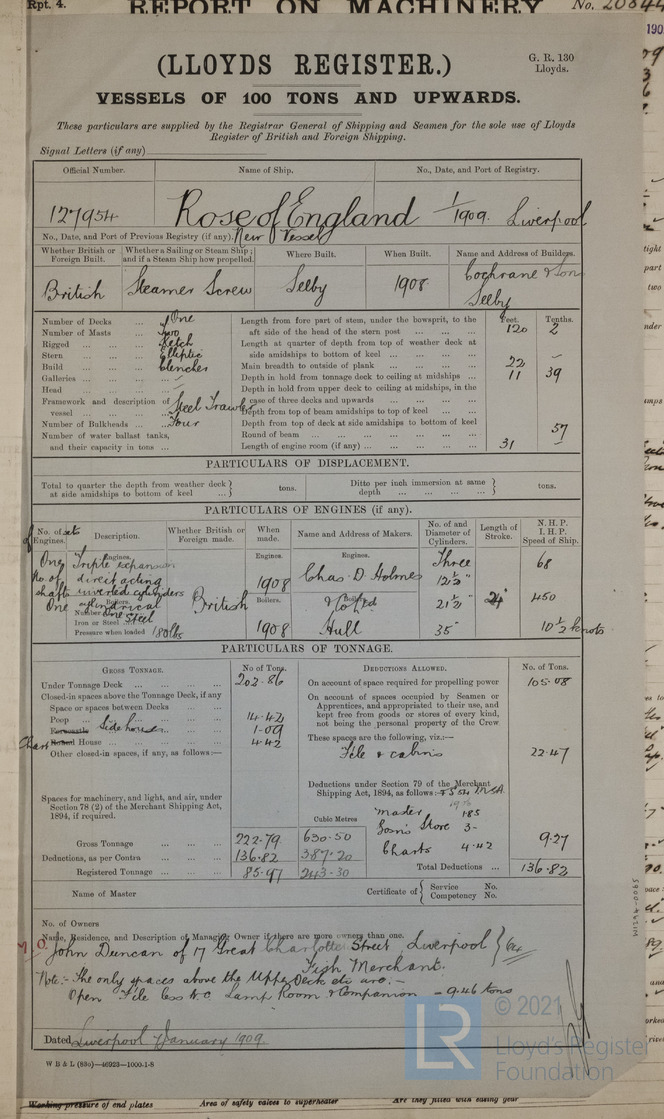 Rpt. 4. REPORT ON MACHINERY No. 20844
(LLOYDS REGISTER.)
G. R. 130
Lloyds.
VESSELS OF 100 TONS AND UPWARDS.
These particulars are supplied by the Registrar General of Shipping and Seamen for the sole use of Lloyds
Register of British and Foreign Shipping.
Signal Letters (if any)
Official Number. Name of Ship. No., Date, and Port of Registry.
127954 Rose of England 1/1909. Liverpool
No., Date, and Port of Previous Registry (if any). New Vessel
Whether British or Foreign Built. Whether a Sailing or Steam Ship; and if a Steam Ship how propelled. Where Built. When Built. Name and Address of Builders.
British Steamer Screw Selby 1908 Cochrane & Son
Selby
Number of Decks One
Number of Masts Two
Rigged Ketch
Stern Elliptic
Build Clencher
Galleries —
Head —
Framework and description of vessel Steel Trawler
Number of Bulkheads Four
Number of water ballast tanks, and their capacity in tons
Feet. Tenths.
Length from fore part of stem, under the bowsprit, to the
aft side of the head of the stern post 120 2
Length at quarter of depth from top of weather deck at
side amidships to bottom of keel
Main breadth to outside of plank 22 —
Depth in hold from tonnage deck to ceiling at midships 11 39
Depth in hold from upper deck to ceiling at midships, in the
case of three decks and upwards
Depth from top of beam amidships to top of keel
Depth from top of deck at side amidships to bottom of keel
Round of beam 57
Length of engine room (if any) 31 —
PARTICULARS OF DISPLACEMENT.
Total to quarter the depth from weather deck at side amidships to bottom of keel } tons.
Ditto per inch immersion at same depth } tons.
PARTICULARS OF ENGINES (if any).
No. of sets of Engines. Description. Whether British or Foreign made. When made. Name and Address of Makers. No. of and Diameter of Cylinders. Length of Stroke. N. H. P. I. H. P. Speed of Ship.
One Engines. Triple expansion Engines. Engines. Three 68
No. of direct acting 1908 Chas D. Holmes 12½"
shafts inverted cylinders
One Boilers. cylindrical British Boilers. Boilers. 21½" 24" 450
Number One
Iron or Steel Steel
Pressure when loaded 180 lbs 1908 Hull 35" 10½ knots
PARTICULARS OF TONNAGE.
GROSS TONNAGE. No of Tons.
Under Tonnage Deck 202.86
Closed-in spaces above the Tonnage Deck, if any
Space or spaces between Decks
Poop 14.42
Forecastle Side houses 1.09
Chart Round House 4.42
Other closed-in spaces, if any, as follows:—
Spaces for machinery, and light, and air, under
Section 78 (2) of the Merchant Shipping Act,
1894, if required.
Cubic Metres
Gross Tonnage 222.79 630.50
Deductions, as per Contra 136.82 387.20
Registered Tonnage 85.97 243.30
DEDUCTIONS ALLOWED. No. of Tons.
On account of space required for propelling power 105.08
On account of spaces occupied by Seamen or
Apprentices, and appropriated to their use, and
kept free from goods or stores of every kind,
not being the personal property of the Crew
These spaces are the following, viz.:—
F'cle & cabins 22.47
Deductions under Section 79 of the Merchant
Shipping Act, 1894, as follows:
Master 1.85
Bosn's Store 3 -
Charts 4.42 9.27
Total Deductions 136.82
Name of Master
Certificate of { Service No.
Competency No.
No. of Owners
Name, Residence, and Description of Managing Owner if there are more owners than one.
M.O. John Duncan of 17 Great Charlotte Street, Liverpool
Fish Merchant.
Note:- The only spaces above the Upper Deck etc are.-
Open F'cle less W.C Lamp Room & Companion - 9.46 tons
Dated Liverpool 7 January 1909.
W B & L (880)—46923—1000-1-8
© 2021
Lloyd's Register
Foundation
LR
Working pressure of end plates Area of safety valves to superheater Are they fitted with easing gear